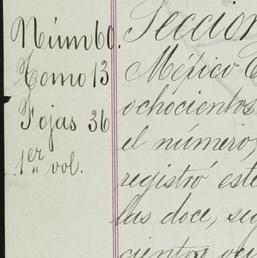 Núm 60.
Tomo 13
Fojas 36
1er vol.
Seccion
México
ochocientos
el número,
registró este
las doce, seg
cientos